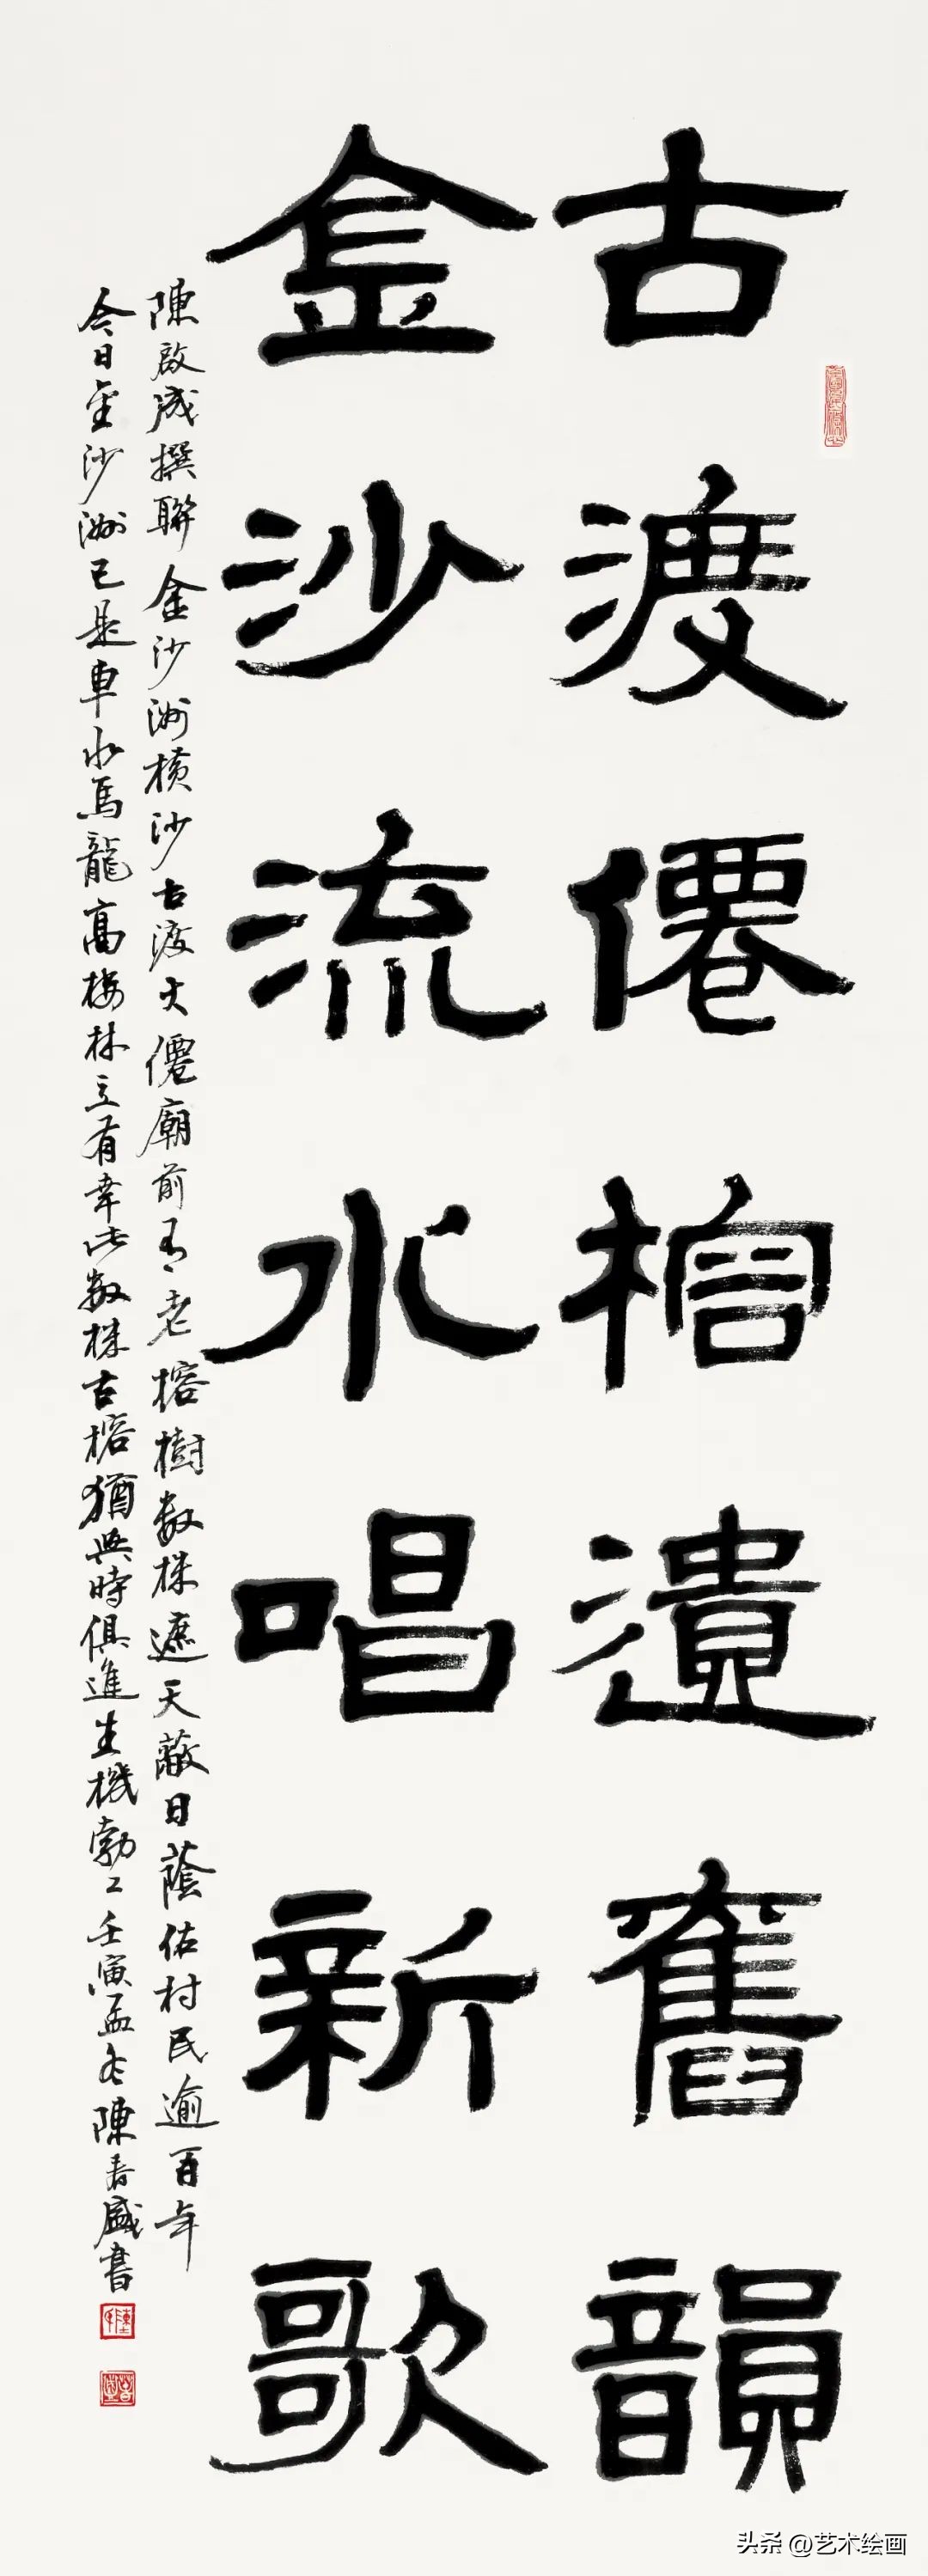 古渡僊榕遺舊韻
金沙流水唱新歌
陳啟成撰聯金沙洲橫沙古渡大僊廟前有老榕樹數株遮天蔽日蔭佑村民逾百年
今日金沙洲已是車水馬龍高樓林立有幸此數株古榕猶與時俱進生機勃〻壬寅孟冬陳春盛書
头条 @艺术绘画